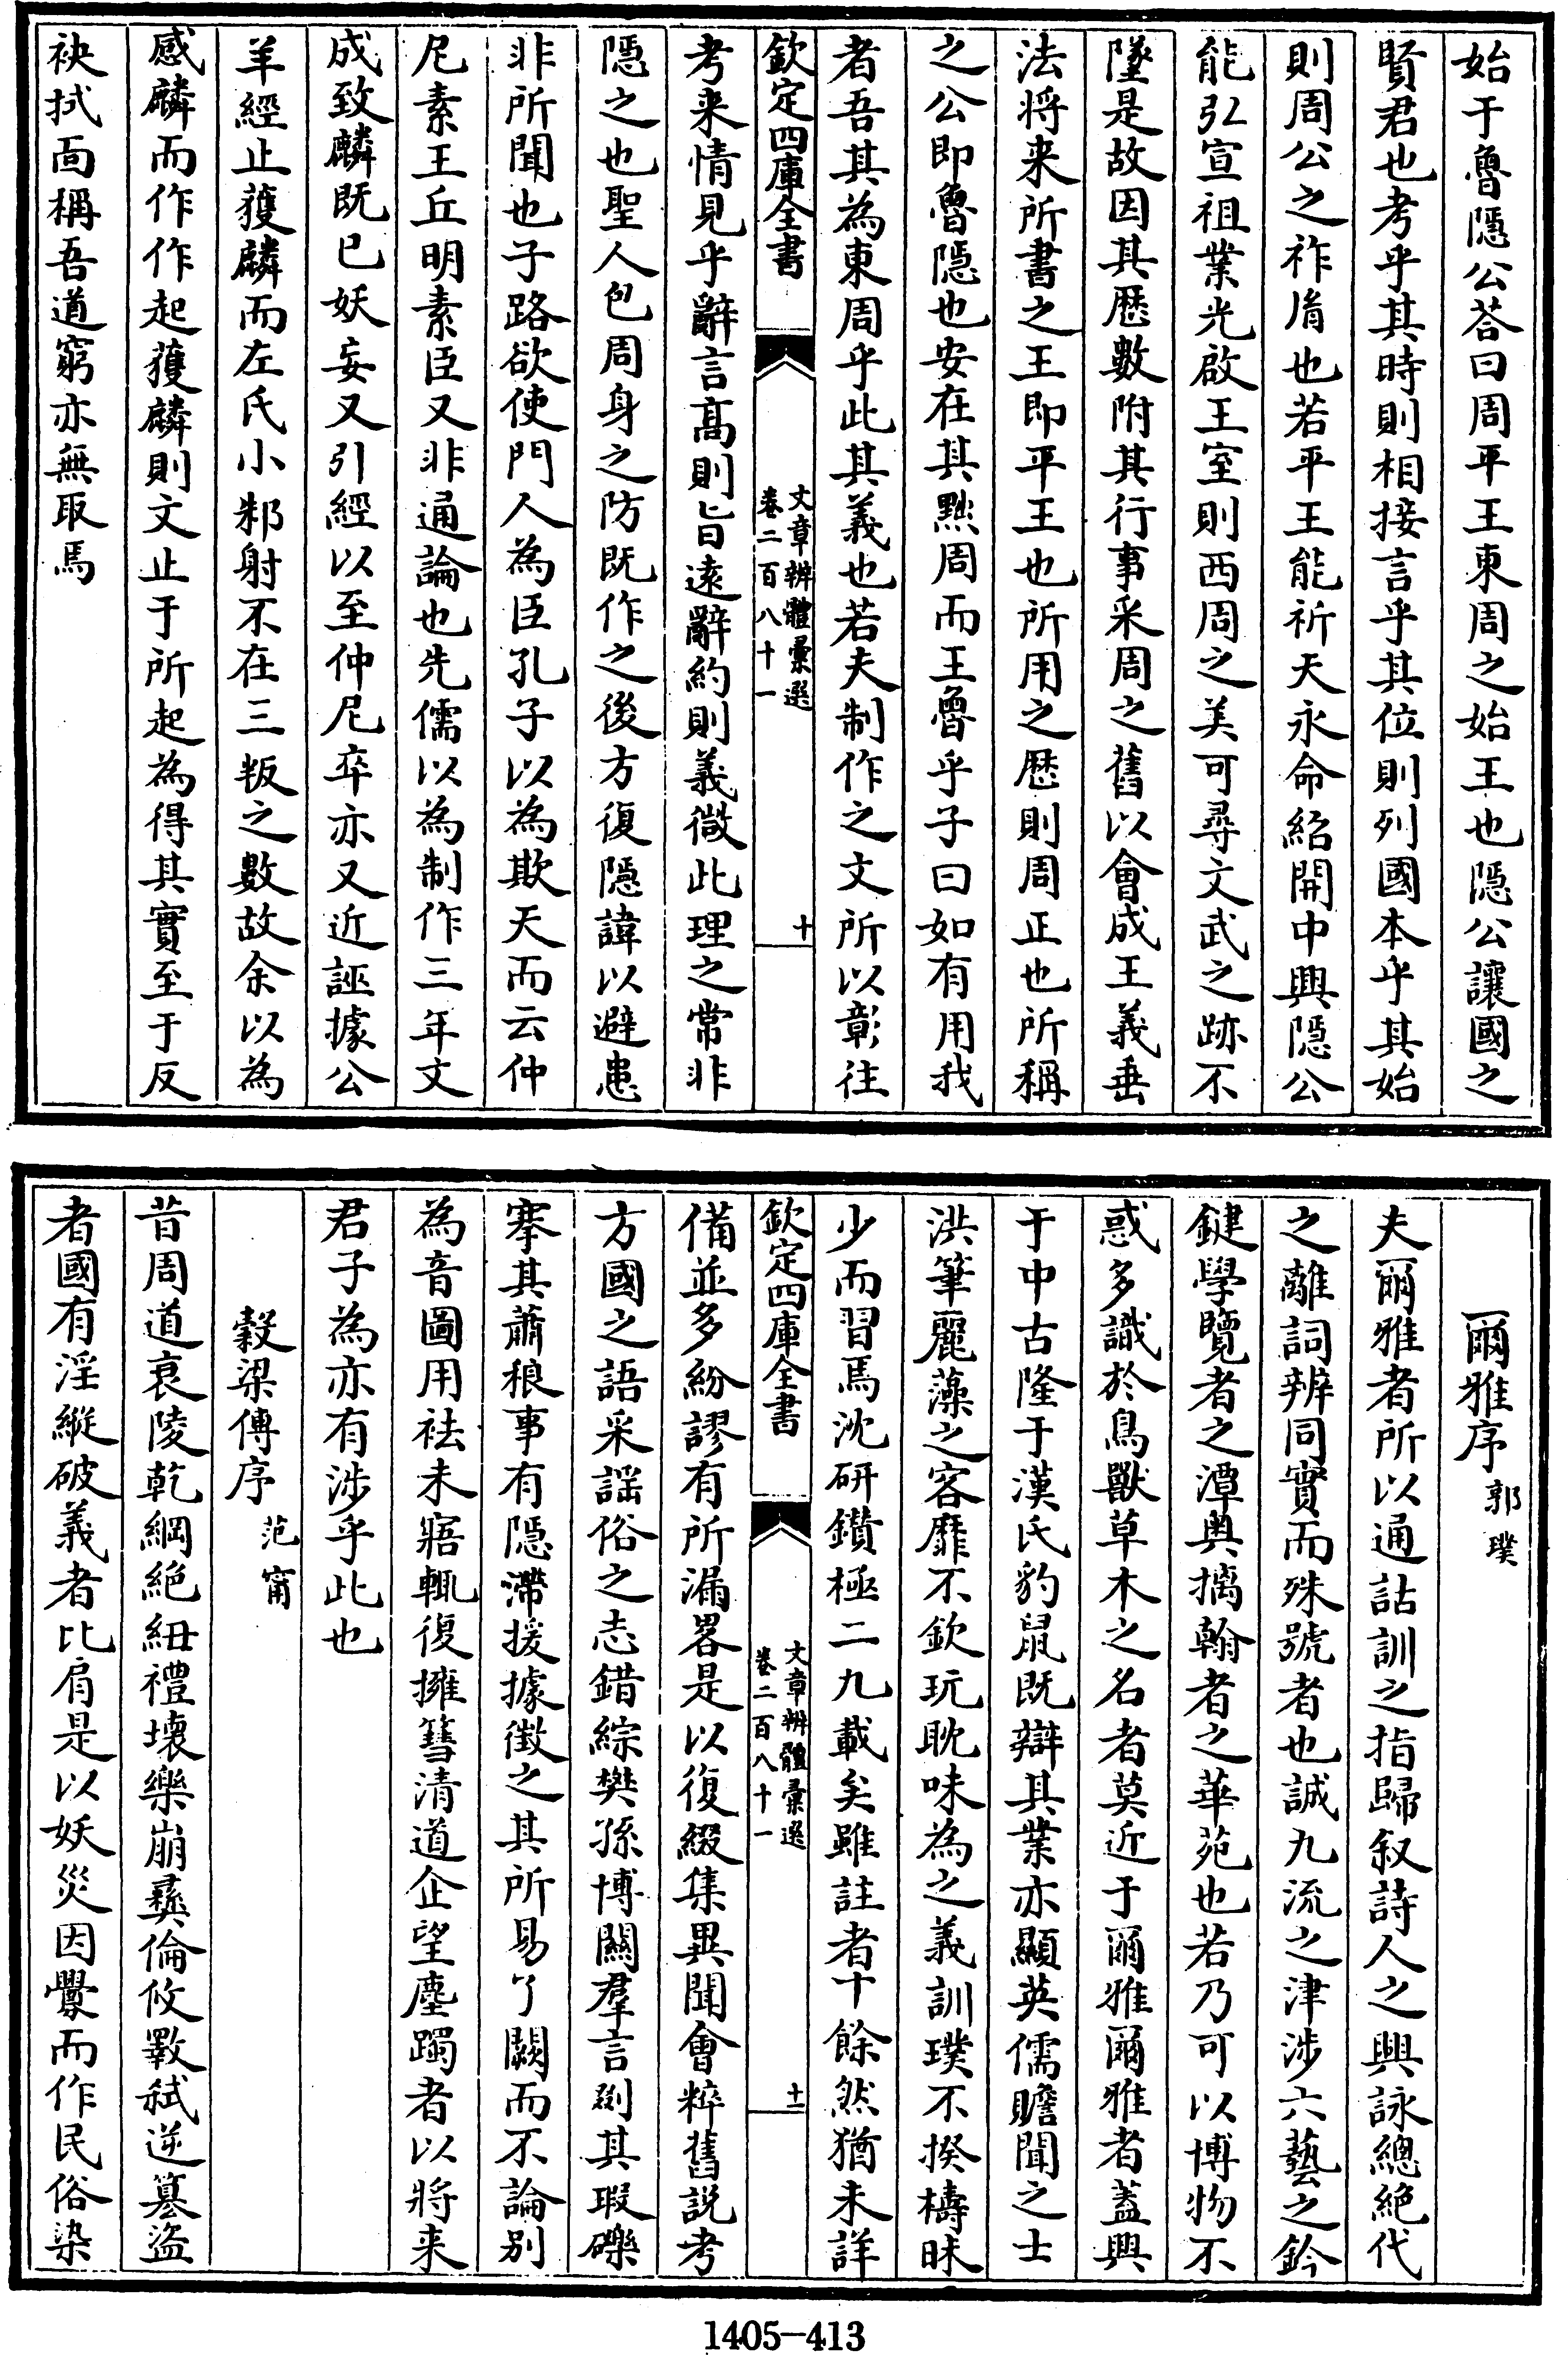 始于魯隱公荅曰周平王東周之始王也隱公讓國之
賢君也考乎其時則相接言乎其位則列國本乎其始
則周公之祚胤也若平王能祈天永命紹開中興隱公
能弘宣祖業光啟王室則西周之美可尋文武之跡不
墜是故因其歷數附其行事采周之舊以會成王義垂
法將来所書之王即平王也所用之歷則周正也所稱
之公即魯隱也安在其黜周而王魯乎子曰如有用我
者吾其為東周乎此其義也若夫制作之文所以彰往
欽定四庫全書
文章辨體彙選
卷二百八十一
十
考来情見乎辭言高則旨遠辭約則義微此理之常非
隱之也聖人包周身之防既作之後方復隱諱以避患
非所聞也子路欲使門人為臣孔子以為欺天而云仲
尼素王丘明素臣又非通論也先儒以為制作三年文
成致麟既已妖妄又引經以至仲尼卒亦又近誣據公
羊經止獲麟而左氏小邾射不在三叛之數故余以為
感麟而作作起獲麟則文止于所起為得其實至于反
袂拭面稱吾道窮亦無取焉
爾雅序郭璞
夫爾雅者所以通詁訓之指歸叙詩人之興詠總絶代
之離詞辨同實而殊號者也誠九流之津涉六藝之鈐
鍵學覽者之潭奥摛翰者之華苑也若乃可以博物不
惑多識於鳥獸草木之名者莫近于爾雅爾雅者蓋興
于中古隆于漢氏豹鼠既辯其業亦顯英儒贍聞之士
洪筆麗藻之客靡不欽玩耽味為之義訓璞不揆檮昧
少而習焉沈研鑚極二九載矣雖註者十餘然猶未詳
欽定四庫全書
文章辨體彙選
卷二百八十一
十一
備並多紛謬有所漏畧是以復綴集異聞會粹舊説考
方國之語采謡俗之志錯綜樊孫博關羣言剟其瑕礫
搴其蕭稂事有隱滯援據徵之其所易了闕而不論别
為音圖用祛未寤輒復擁篲清道企望塵躅者以將来
君子為亦有涉乎此也
榖梁傳序范甯
昔周道衰陵乾綱絶紐禮壞樂崩彞倫攸斁弑逆簒盜
者國有淫縱破義者比肩是以妖災因釁而作民俗染
1405—413